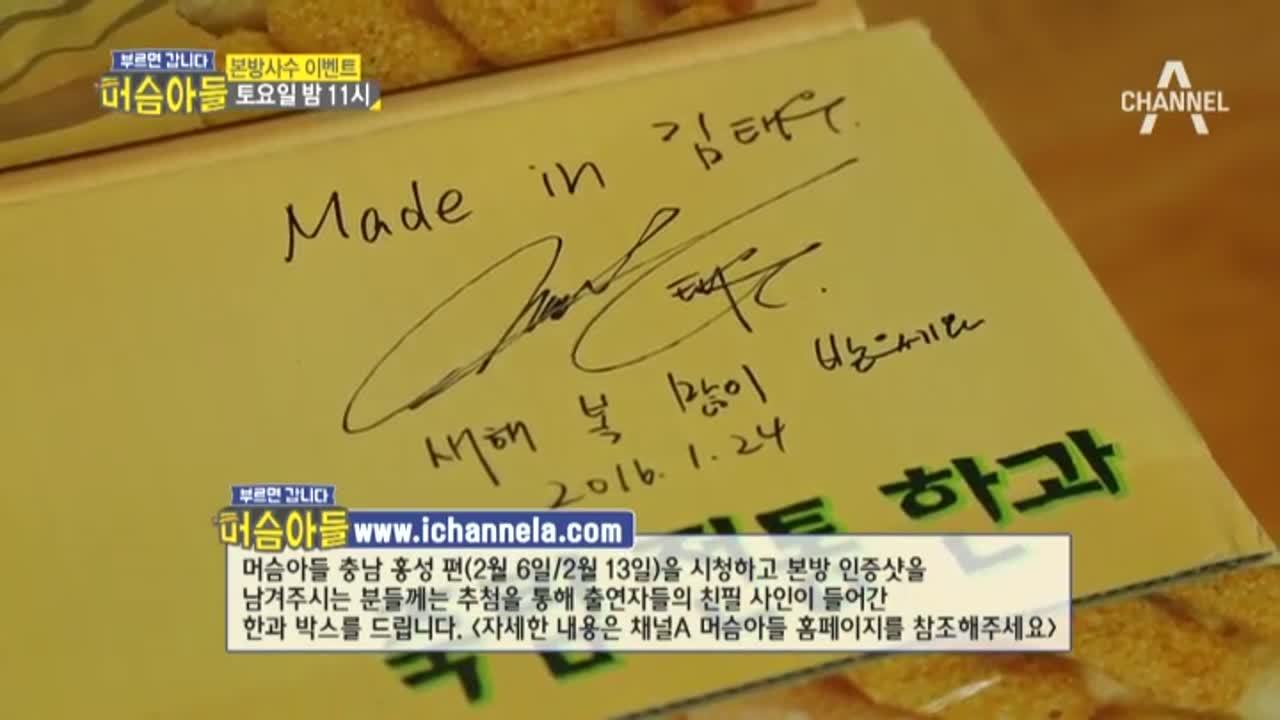 부르면 갑니다
머슴아들
본방사수 이벤트
토요일 밤 11시
CHANNEL A
Made in 김태우.
태우.
새해 복 많이 받으세요
2016.1.24
한과
부르면 갑니다
머슴아들
www.ichannela.com
머슴아들 충남 홍성 편(2월 6일/2월 13일)을 시청하고 본방 인증샷을
남겨주시는 분들께는 추첨을 통해 출연자들의 친필 사인이 들어간
한과 박스를 드립니다. <자세한 내용은 채널A 머슴아들 홈페이지를 참조해주세요>